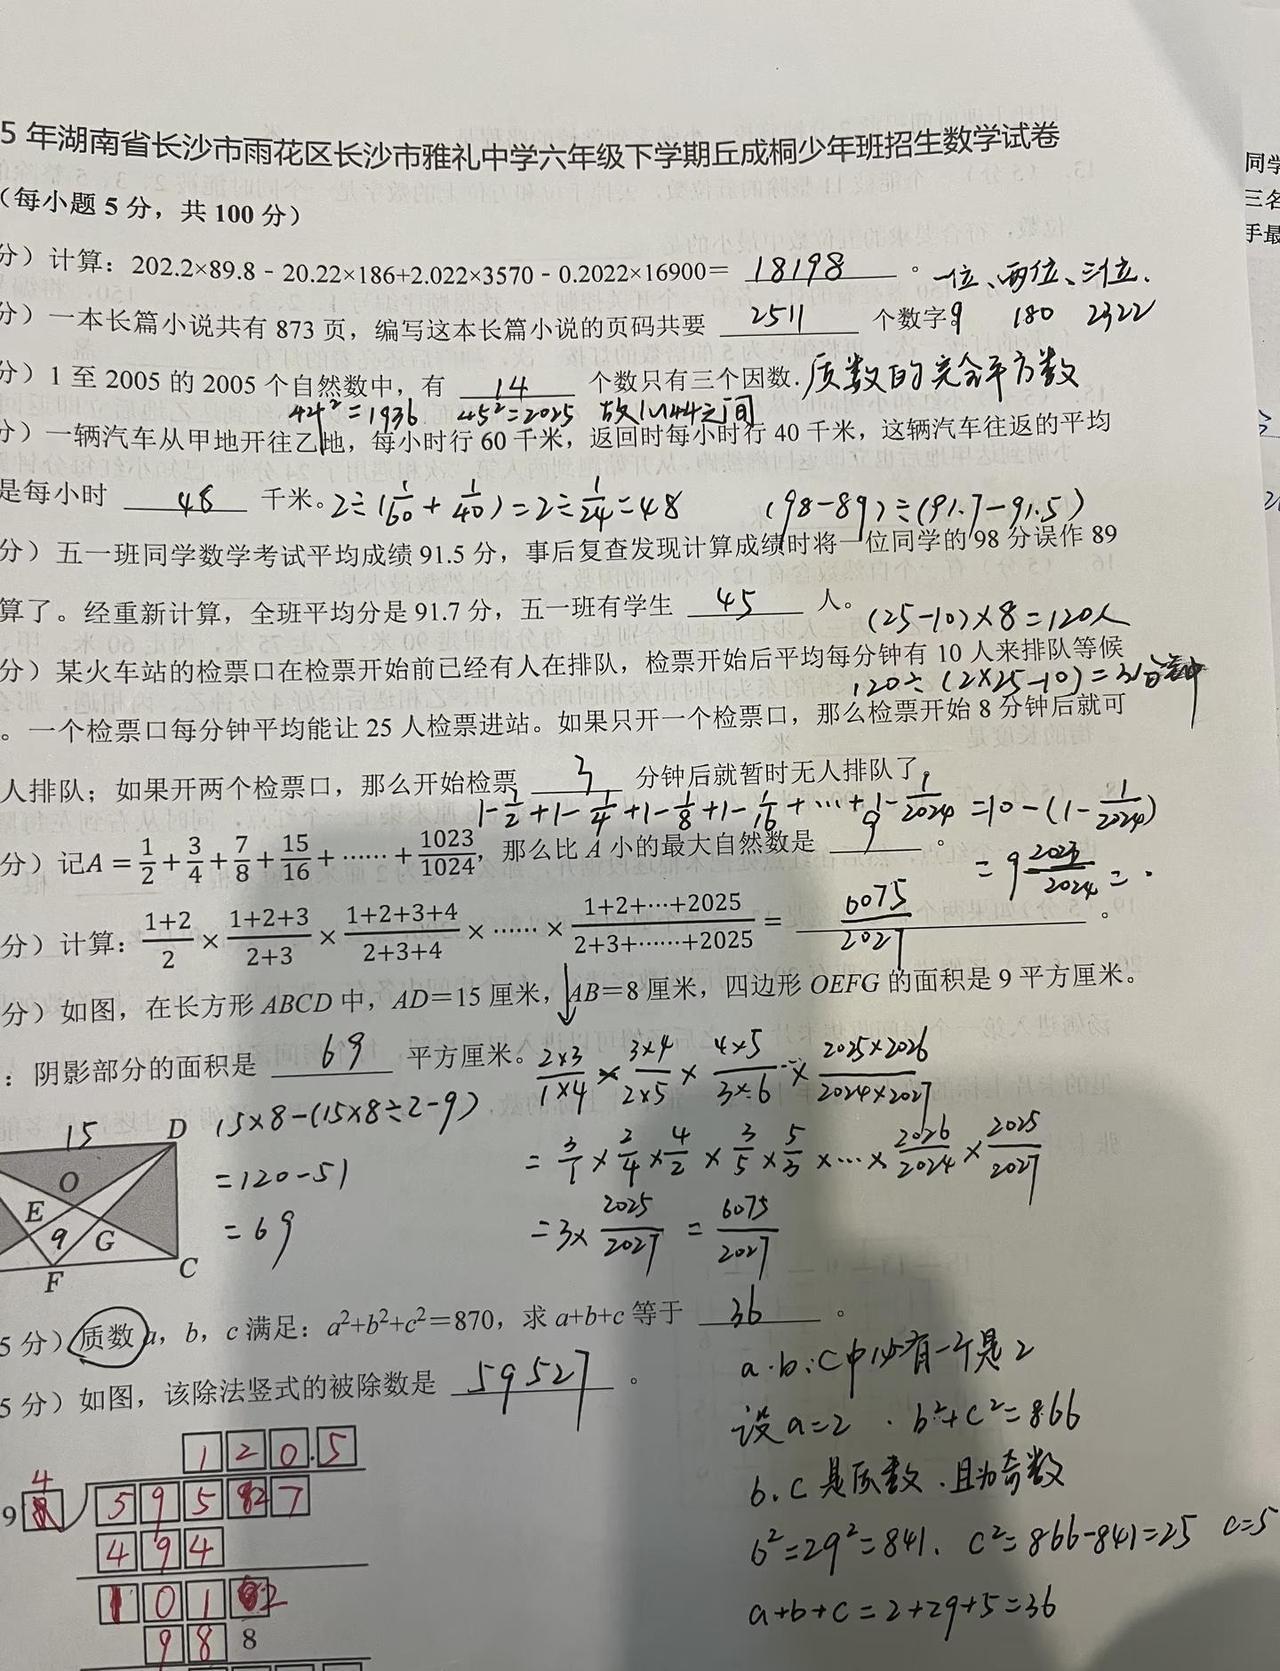 5 年湖南省长沙市雨花区长沙市雅礼中学六年级下学期丘成桐少年班招生数学试卷
同学
（每小题 5 分，共 100 分）
三名
手最
分）计算：202.2×89.8﹣20.22×186+2.022×3570﹣0.2022×16900= 18198 。 一位、两位、三位.
分）一本长篇小说共有 873 页，编写这本长篇小说的页码共要 2511 个数字 9 180 2322
分）1 至 2005 的 2005 个自然数中，有 14 个数只有三个因数. 质数的完全平方数
44²=1936 45²=2025 故1~44之间
分）一辆汽车从甲地开往乙地，每小时行 60 千米，返回时每小时行 40 千米，这辆汽车往返的平均
是每小时 48 千米。 2÷(1/60+1/40)=2÷1/24=48 (98-89)÷(91.7-91.5)
分）五一班同学数学考试平均成绩 91.5 分，事后复查发现计算成绩时将一位同学的 98 分误作 89
算了。经重新计算，全班平均分是 91.7 分，五一班有学生 45 人。 (25-10)×8=120人
分）某火车站的检票口在检票开始前已经有人在排队，检票开始后平均每分钟有 10 人来排队等候
120÷(2×25-10)=3分钟
。一个检票口每分钟平均能让 25 人检票进站。如果只开一个检票口，那么检票开始 8 分钟后就可
人排队；如果开两个检票口，那么开始检票 3 分钟后就暂时无人排队了
1-1/2+1-1/4+1-1/8+1-1/16+…+1-1/2024=10-(1-1/2024)
分）记A=1/2+3/4+7/8+15/16+……+1023/1024，那么比 A 小的最大自然数是 9 。
=9 2023/2024=.
分）计算：(1+2)/2×(1+2+3)/(2+3)×(1+2+3+4)/(2+3+4)×……×(1+2+⋯+2025)/(2+3+⋯⋯+2025)= 6075/2027 。
分）如图，在长方形 ABCD 中，AD＝15 厘米，AB＝8 厘米，四边形 OEFG 的面积是 9 平方厘米。
：阴影部分的面积是 69 平方厘米。
2×3/1×4×3×4/2×5×4×5/3×6…×2025×2026/2024×2027
15×8-(15×8÷2-9)
=120-51
=69
=3/1×2/4×4/2×3/5×5/3×…×2026/2024×2025/2027
=3×2025/2027=6075/2027
15 D
O
E
9 G
F C
5 分）质数 a，b，c 满足：a²+b²+c²＝870，求 a+b+c 等于 36 。
5 分）如图，该除法竖式的被除数是 59527 。
a.b.c中必有一个是2
设a=2 . b²+c²=866
b.c是质数.且为奇数
b²=29²=841. c²=866-841=25 c=5
a+b+c=2+29+5=36
1 2 0.5
4
9
5 9 5 2 7
4 9 4
1 0 1 2
9 8 8